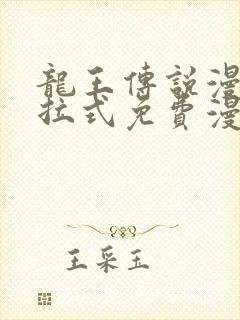 龍王傳說漫
拉式免費漫
王采玉